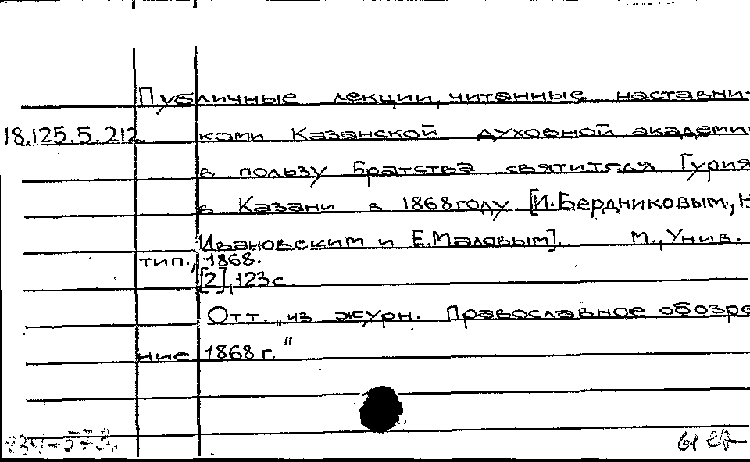 Публичные лекции, читанные наставни-
18.125.5.212 ками Казанской духовной академии
в пользу Братства святителя Гурия
в Казани в 1868 году [И.Бердниковым, Н
Ивановским и Е.Маловым]. М., Унив.
тип., 1868.
[2], 123с.
Отт. из журн. Православное обозре
ние 1868 г."